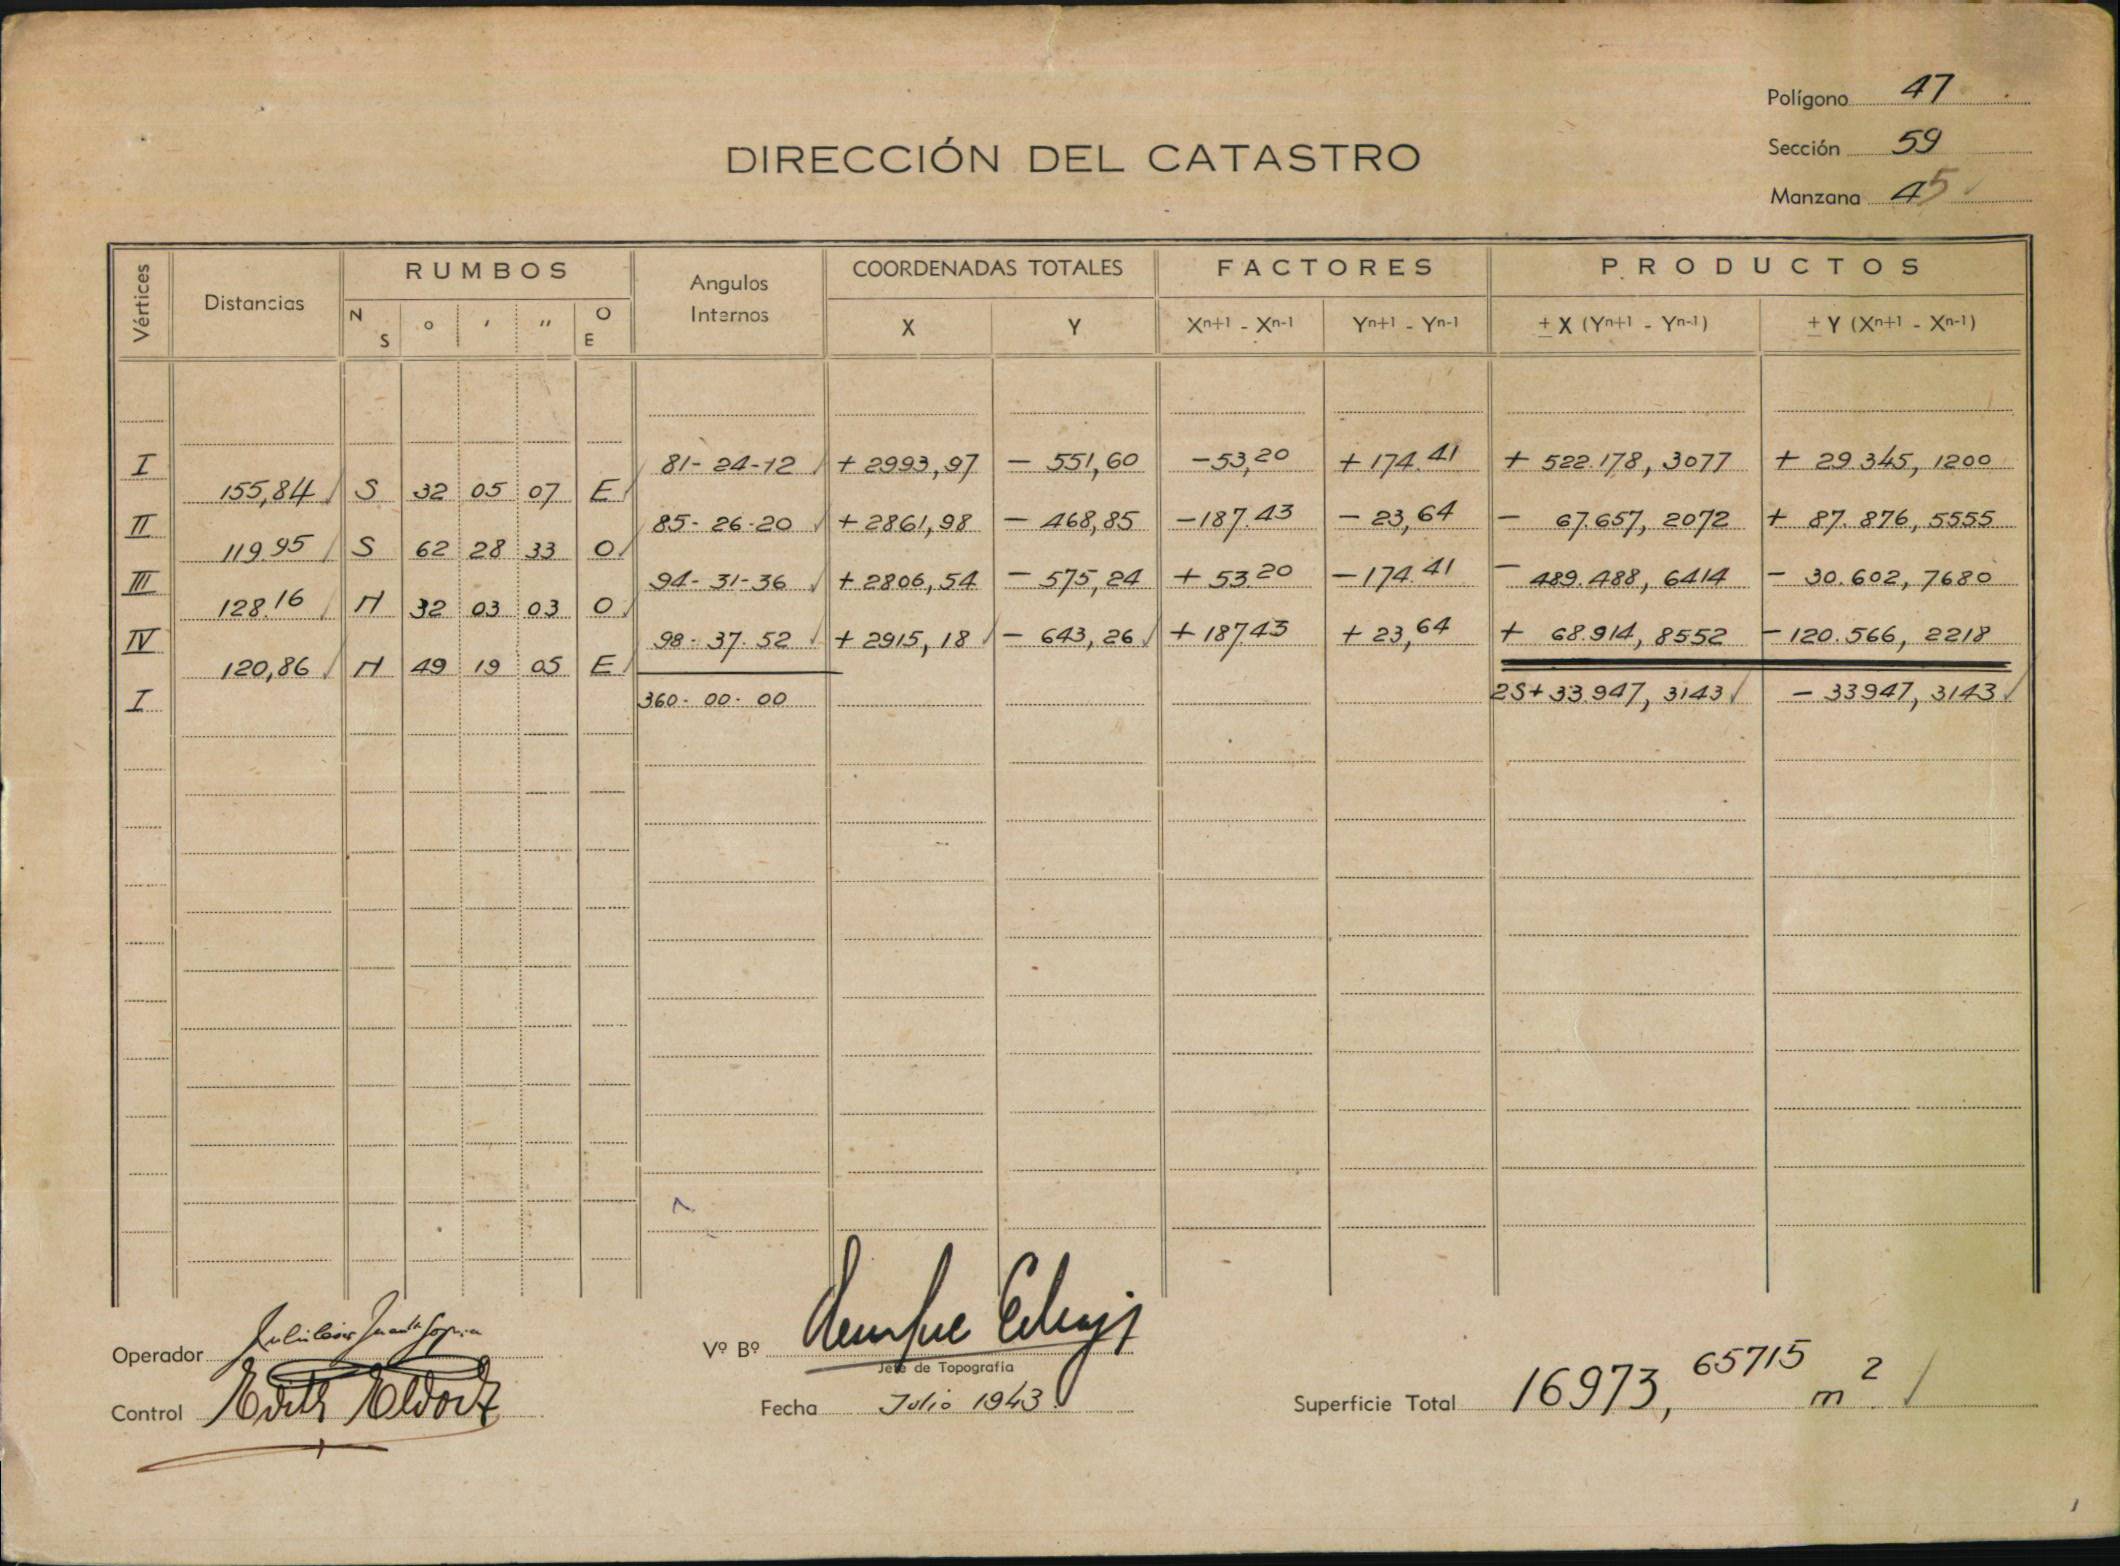 Polígono 47
Sección 59
Manzana 45
DIRECCIÓN DEL CATASTRO
Vértices Distancias RUMBOS Angulos Internos COORDENADAS TOTALES FACTORES PRODUCTOS
N S o ' '' O E X Y Xn+1 - Xn-1 Yn+1 - Yn-1 ± X (Yn+1 - Yn-1) ± Y (Xn+1 - Xn-1)
I 81-24-12 + 2993,97 - 551,60 -53,20 + 174.41 + 522.178, 3077 + 29345, 1200
155,84 S 32 05 07 E
II 85-26-20 + 2861,98 - 468,85 -187.43 - 23,64 - 67.657, 2072 + 87.876, 5555
119.95 S 62 28 33 O
III 94-31-36 + 2806,54 - 575,24 + 53.20 - 174.41 - 489.488, 6414 - 30.602, 7680
128.16 N 32 03 03 O
IV 98-37-52 + 2915,18 - 643,26 + 187.43 + 23,64 + 68.914, 8552 - 120.566, 2218
120,86 N 49 19 05 E
I 360-00-00 2S+33.947, 3143 - 33947, 3143
Operador
Vº Bº
Jefe de Topografía
Control
Fecha Julio 1943
Superficie Total 16973,65715 m2